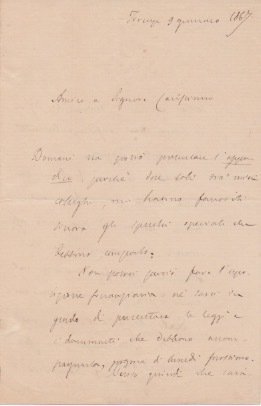 Firenze 9 gennaio 1867
Amico e Signore Carissimo
Domani non posso presentare l'appen
dice, perchè due soli tra' miei
colleghi, mi hanno favorito
finora gli specchi speciali che
debbono comporla.
Non posso farò l'espo
sizione finanziaria, nè sarò in
grado di presentare le leggi e
i documenti che debbono accom
pagnarla, prima di lunedì prossimo.
quindi che